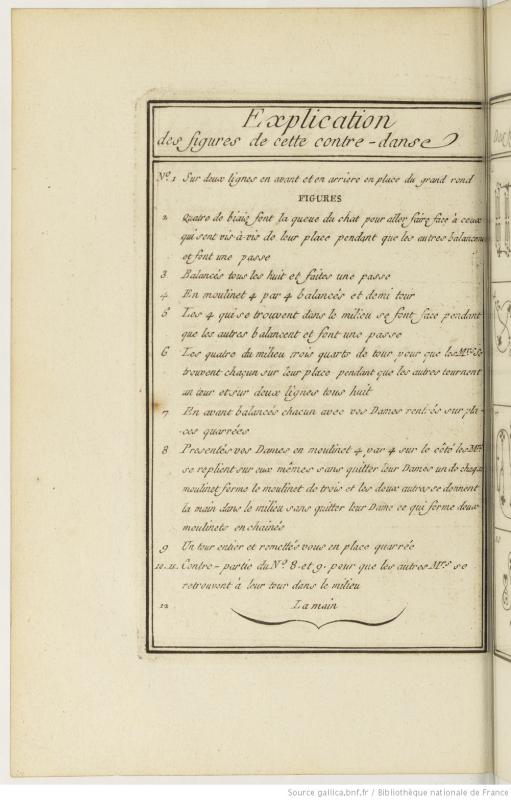 Explication
des figures de cette contre-danse
Nº. 1 Sur deux lignes en avant et en arriere en place du grand rond
FIGURES
2 Quatre de biais font la queue du chat pour aller faire face à ceux
qui sont vis-à-vis de leur place pendant que les autres balancent
et font une passe
3 Balancés tous les huit et faites une passe
4 En moulinet 4 par 4 balancés et demi tour
5 Les 4 qui se trouvent dans le milieu se font face pendant
que les autres balancent et font une passe
6 Les quatre du milieu trois quarts de tour pour que les Mrs. se
trouvent chaqun sur leur place pendant que les autres tournent
un tour et sur deux lignes tous huit
7 En avant balancés chacun avec vos Dames rentrés sur pla-
ces quarrées
8 Presentés vos Dames en moulinet 4 par 4 sur le côté les Mrs.
se replient sur eux mêmes sans quitter leur Dames un de chaque
moulinet forme le moulinet de trois et les deux autres se donnent
la main dans le milieu sans quitter leur Dame ce qui forme deux
moulinets enchainés
9 Un tour entier et remettés vous en place quarrée
10. 11. Contre-partie du Nº. 8. et 9. pour que les autres Mrs. se
retrouvent à leur tour dans le milieu
12 La main
Source gallica.bnf.fr / Bibliothèque nationale de France